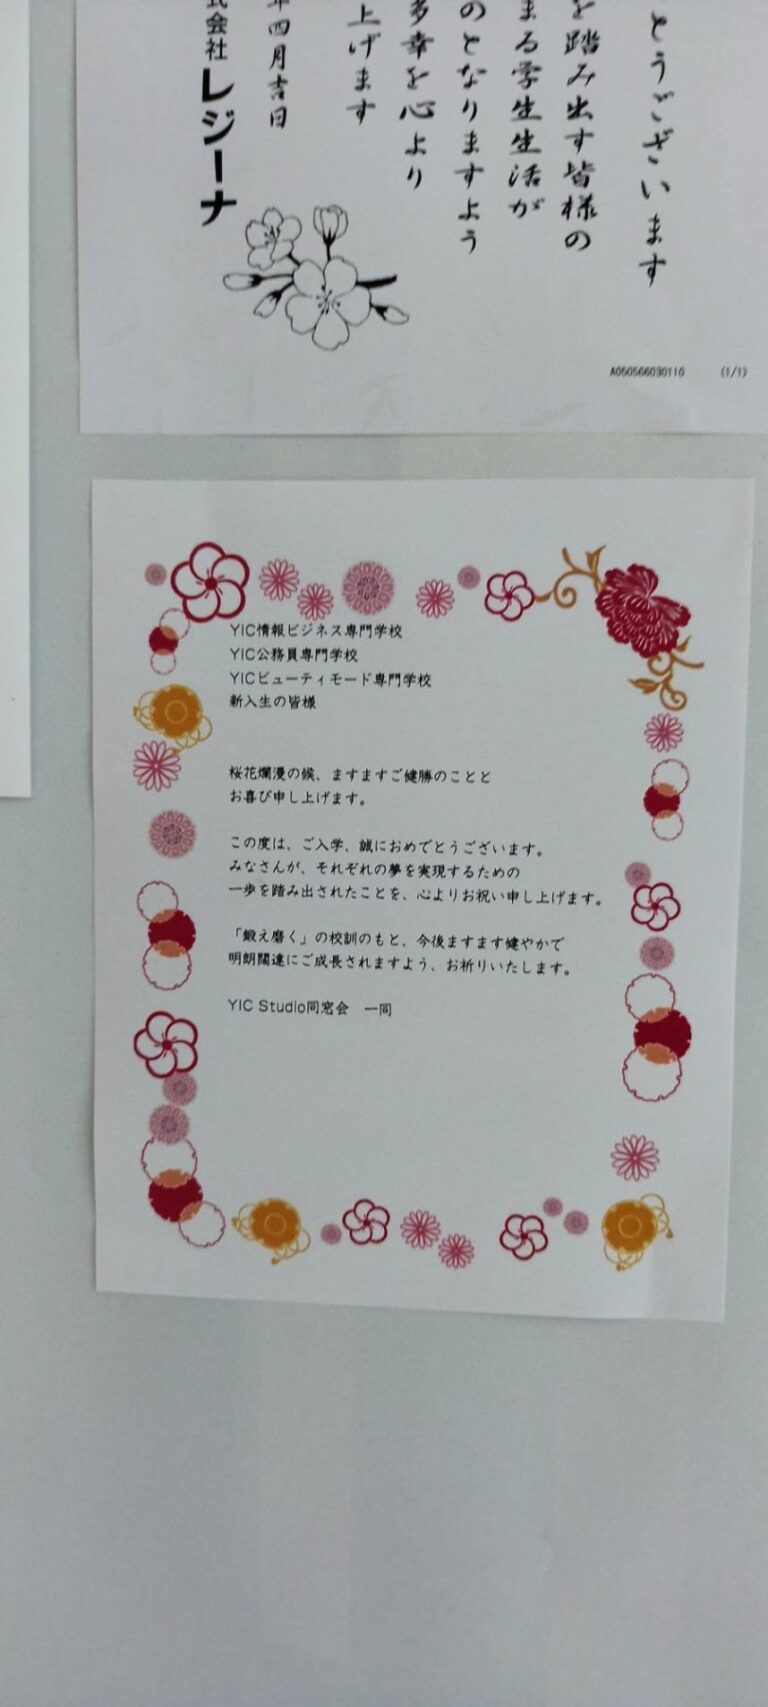 とうございます
を踏み出す皆様の
まる学生生活が
のとなりますよう
多幸を心より
上げます
年四月吉日
式会社レジーナ
A050566030110 (1/1)
YIC情報ビジネス専門学校
YIC公務員専門学校
YICビューティモード専門学校
新入生の皆様
桜花爛漫の候、ますますご健勝のことと
お喜び申し上げます。
この度は、ご入学、誠におめでとうございます。
みなさんが、それぞれの夢を実現するための
一歩を踏み出されたことを、心よりお祝い申し上げます。
「鍛え磨く」の校訓のもと、今後ますます健やかで
明朗闊達にご成長されますよう、お祈りいたします。
YIC Studio同窓会 一同